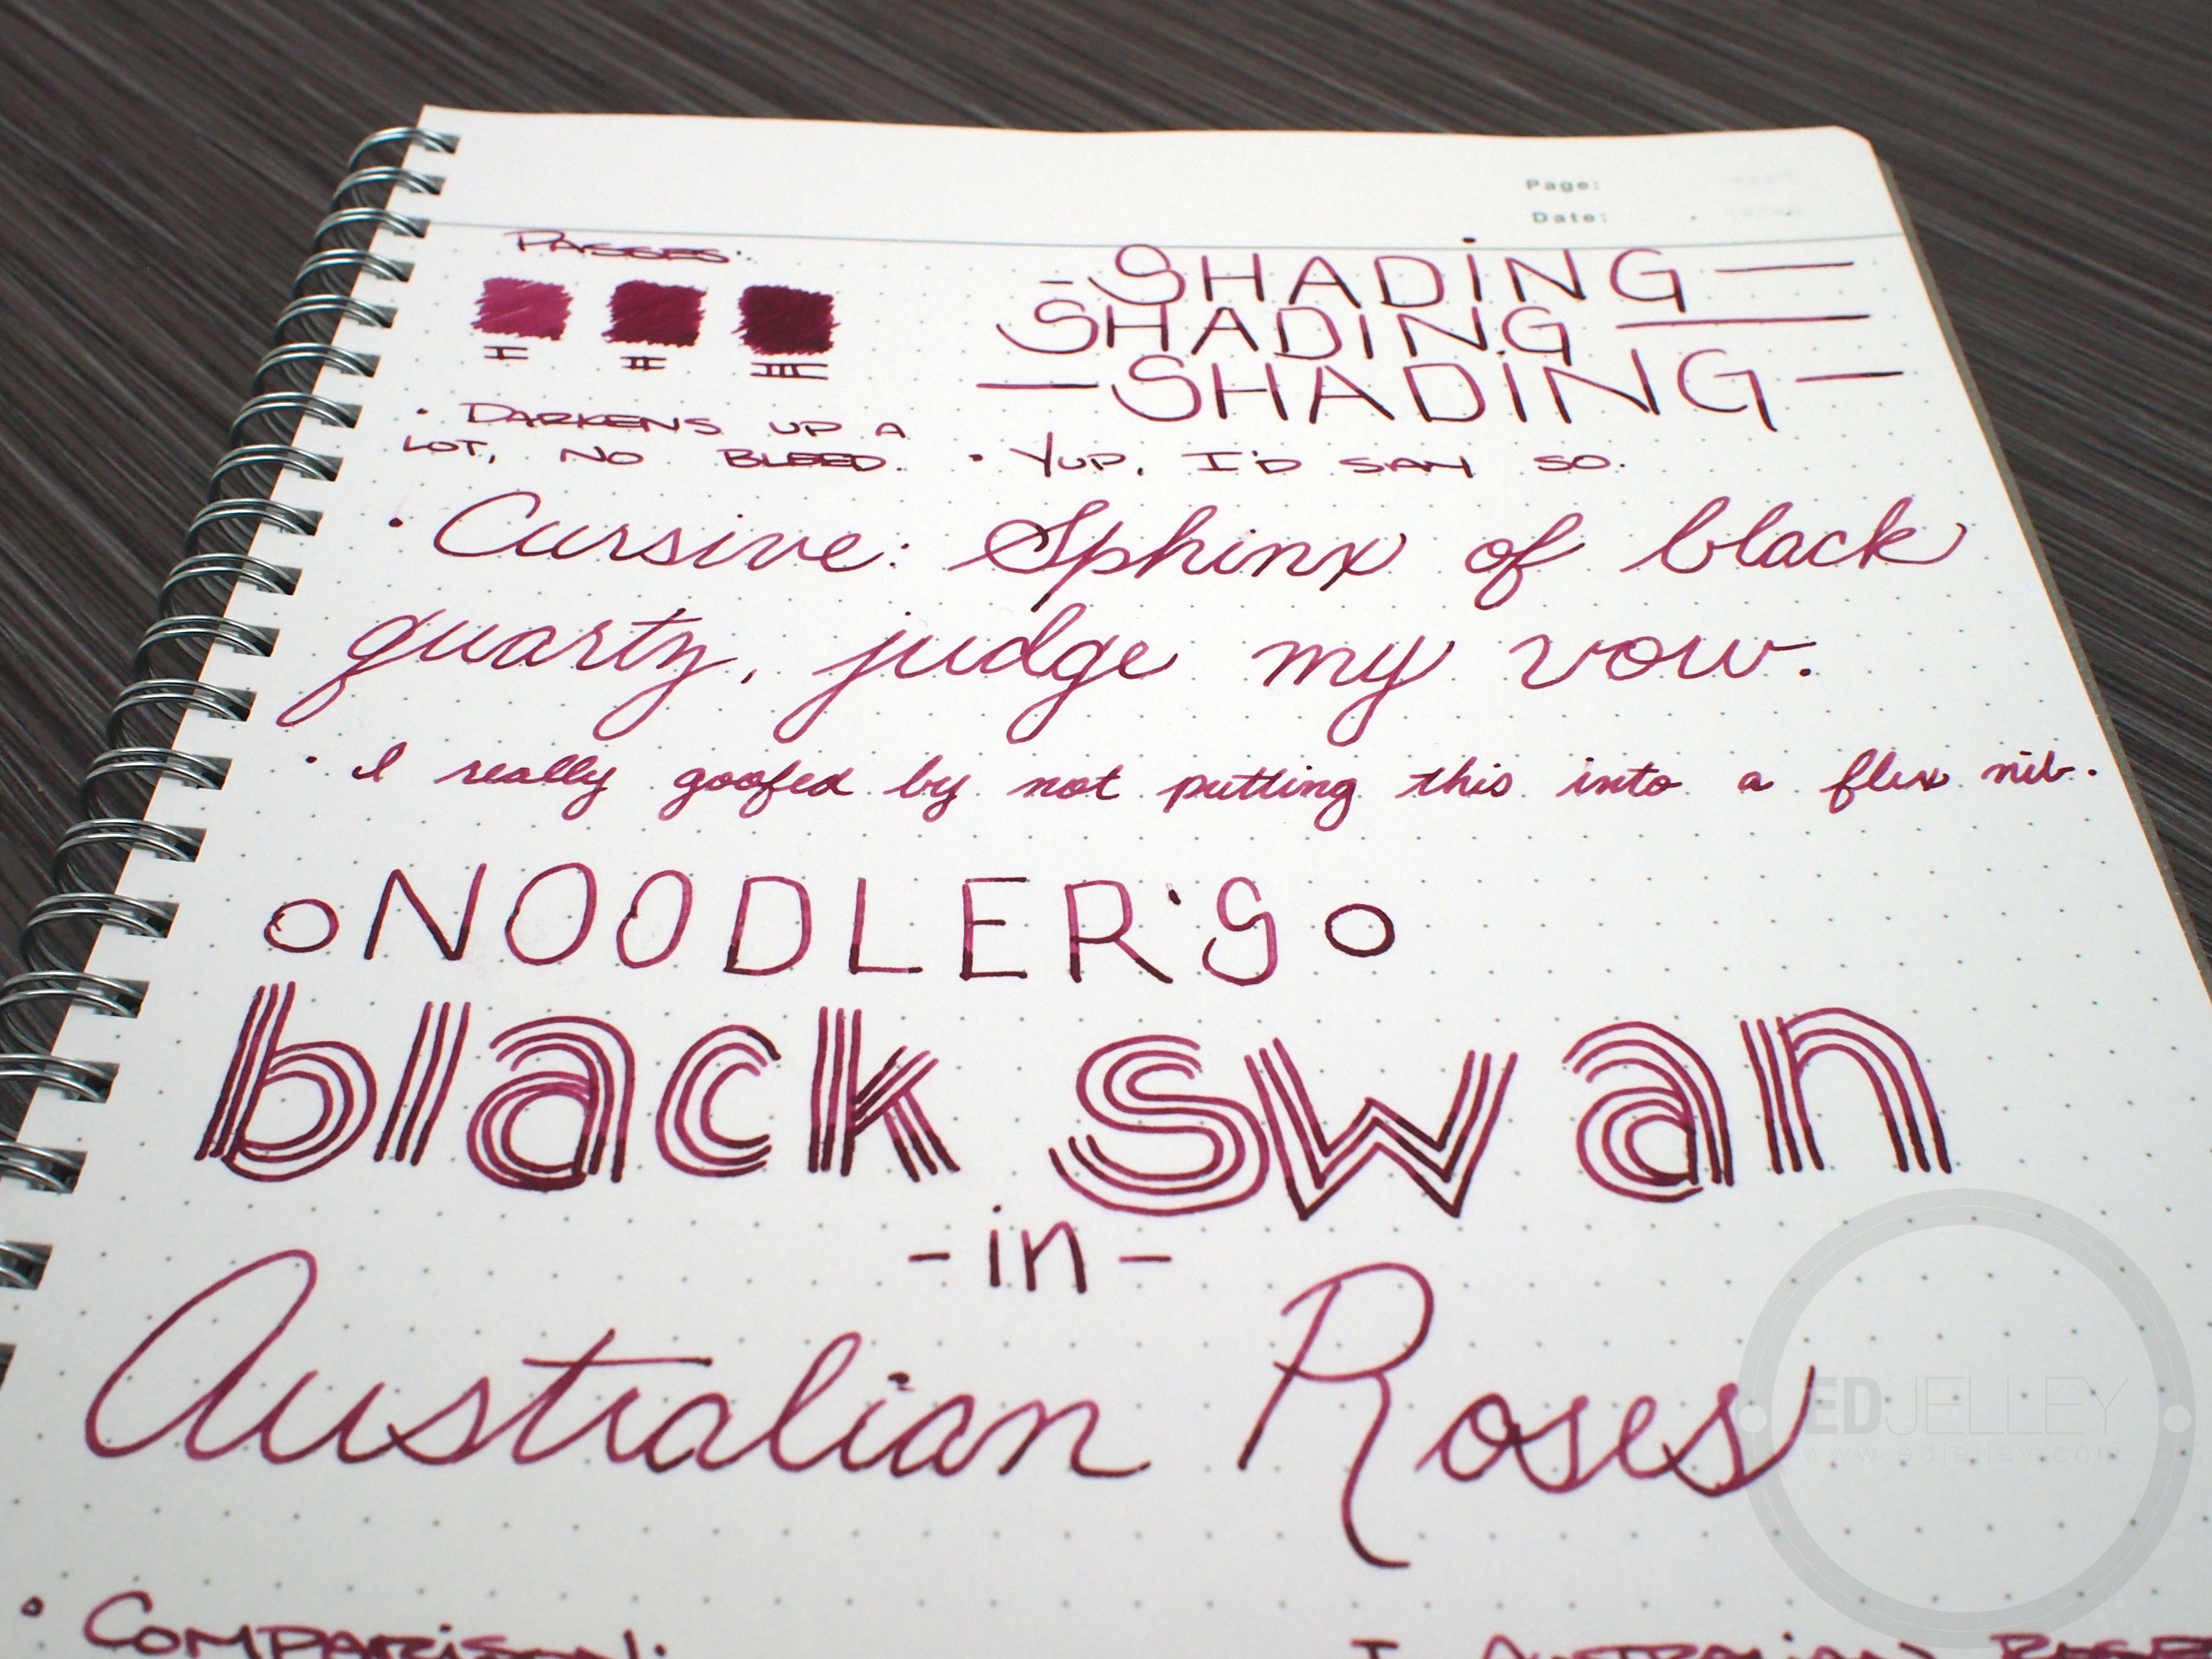 Page:
Date:
PASSES:
I II III
- SHADING —
SHADING —
— SHADING —
• DARKENS UP A
LOT, NO BLEED.
• YUP, I'D SAY SO.
• Cursive: Sphinx of black
quartz, judge my vow.
• I really goofed by not putting this into a flex nib.
o NOODLER'S o
black swan
- in -
Australian Roses
EDJELLEY
www.edjelley.com
• COMPARISON:
I AUSTRALIAN ROSES